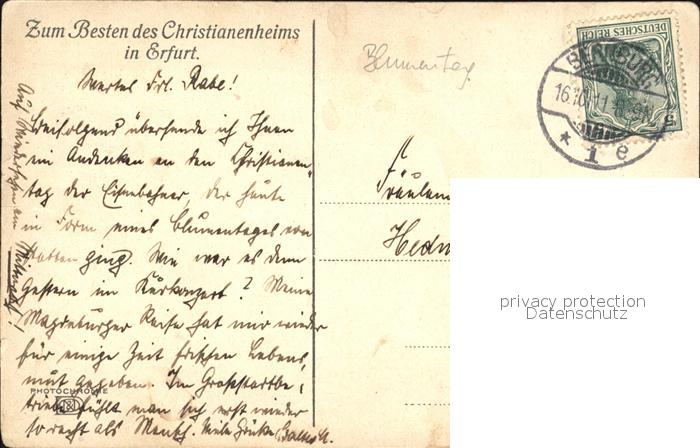 Zum Besten des Christianenheims
in Erfurt.
Blumentag
Wertes Frl. Rabe!
Beifolgend übersende ich Ihnen
im Andenken an den Christianen-
tag der Eisenbahner, der heute
in Form eines Blumentages von
statten ging. Wie war es denn
gestern im Kurkonzert? Meine
Magdeburger Reise hat mir wieder
für einige Zeit frischen Lebens-
mut gegeben. Im Großstadtbe-
triebe fühlt man sich erst wieder
so recht als Mensch. Viele Grüße
Auf Wiedersehen am
PHOTOCHROMIE
DEUTSCHES REICH
BERNBURG
16.10.11
* 1 e
Fräulein
Hedw
privacy protection
Datenschutz